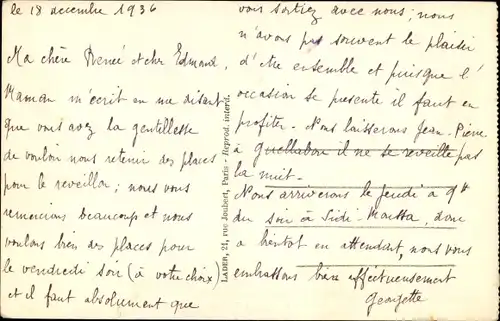 le 18 décembre 1936
Ma chère Renée et cher Edmond,
Maman m'écrit en me disant
que vous avez la gentillesse
de vouloir nous retenir des places
pour le reveillon ; nous vous
remercions beaucoup et nous
voulons bien des places pour
le vendredi soir (à votre choix)
et il faut absolument que
LABER, 21, rue Joubert, Paris - Reprod. interd.
vous sortiez avec nous ; nous
n'avons pas souvent le plaisir
d'être ensemble et puisque l'
occasion se présente il faut en
profiter - Nous laisserons Jean-Pierre
à il ne se reveille pas
la nuit -
Nous arriverons le Jeudi à 9h
du soir à Sidi- donc
à bientôt en attendant, nous vous
embrassons bien affectueusement
Georgette